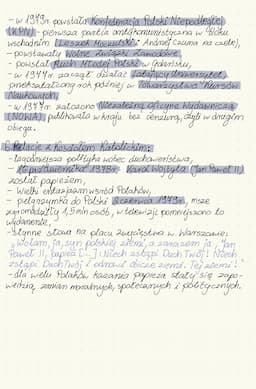 - w 1979 powstała Konfederacja Polski Niepodległej
(KPN) - pierwsza partia antykomunistyczna w bloku
wschodnim (Leszek Moczulski i Andrzej Czuma na czele),
- powstawały Wolne Związki Zawodowe,
- powstał Ruch Młodej Polski w Gdańsku,
- w 1977r. zaczął działać Latający Uniwersytet,
przekształcony rok później w Towarzystwo Kursów
Naukowych,
- w 1977r. założono Niezależną Oficynę Wydawniczą
(NOWA), publikowała w kraju bez cenzury, czyli w drugim
obiegu.
Relacje z Kościołem Katolickim:
- łagodniejsza polityka wobec duchowieństwa,
- 16 października 1978r. Karol Wojtyła (Jan Paweł II)
został papieżem,
- wielki entuzjazm wśród Polaków,
- pielgrzymka do Polski 2 czerwca 1979r., msze
zgromadziły 1,5 mln osób, w telewizji pomniejszono to
wydarzenie,
- słynne słowa na placu Zwycięstwa w Warszawie:
„Wołam, ja, syn polskiej ziemi, a zarazem ja, Jan
Paweł II, papież [...] Niech zstąpi Duch Twój! Niech
zstąpi Duch Twój i odnowi oblicze ziemi. Tej ziemi!"
- dla wielu Polaków kazania papieża stały się zapo-
wiedzią zmian moralnych, społecznych i politycznych.